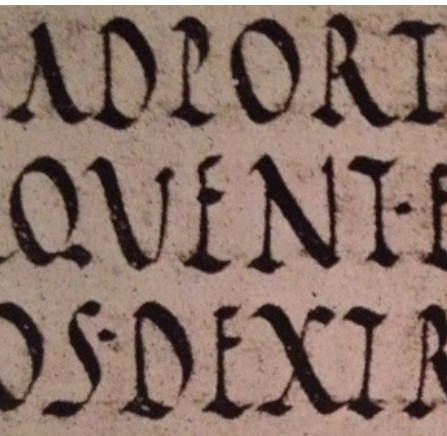 ADPORT
QUENT·E
OS·DEXTR